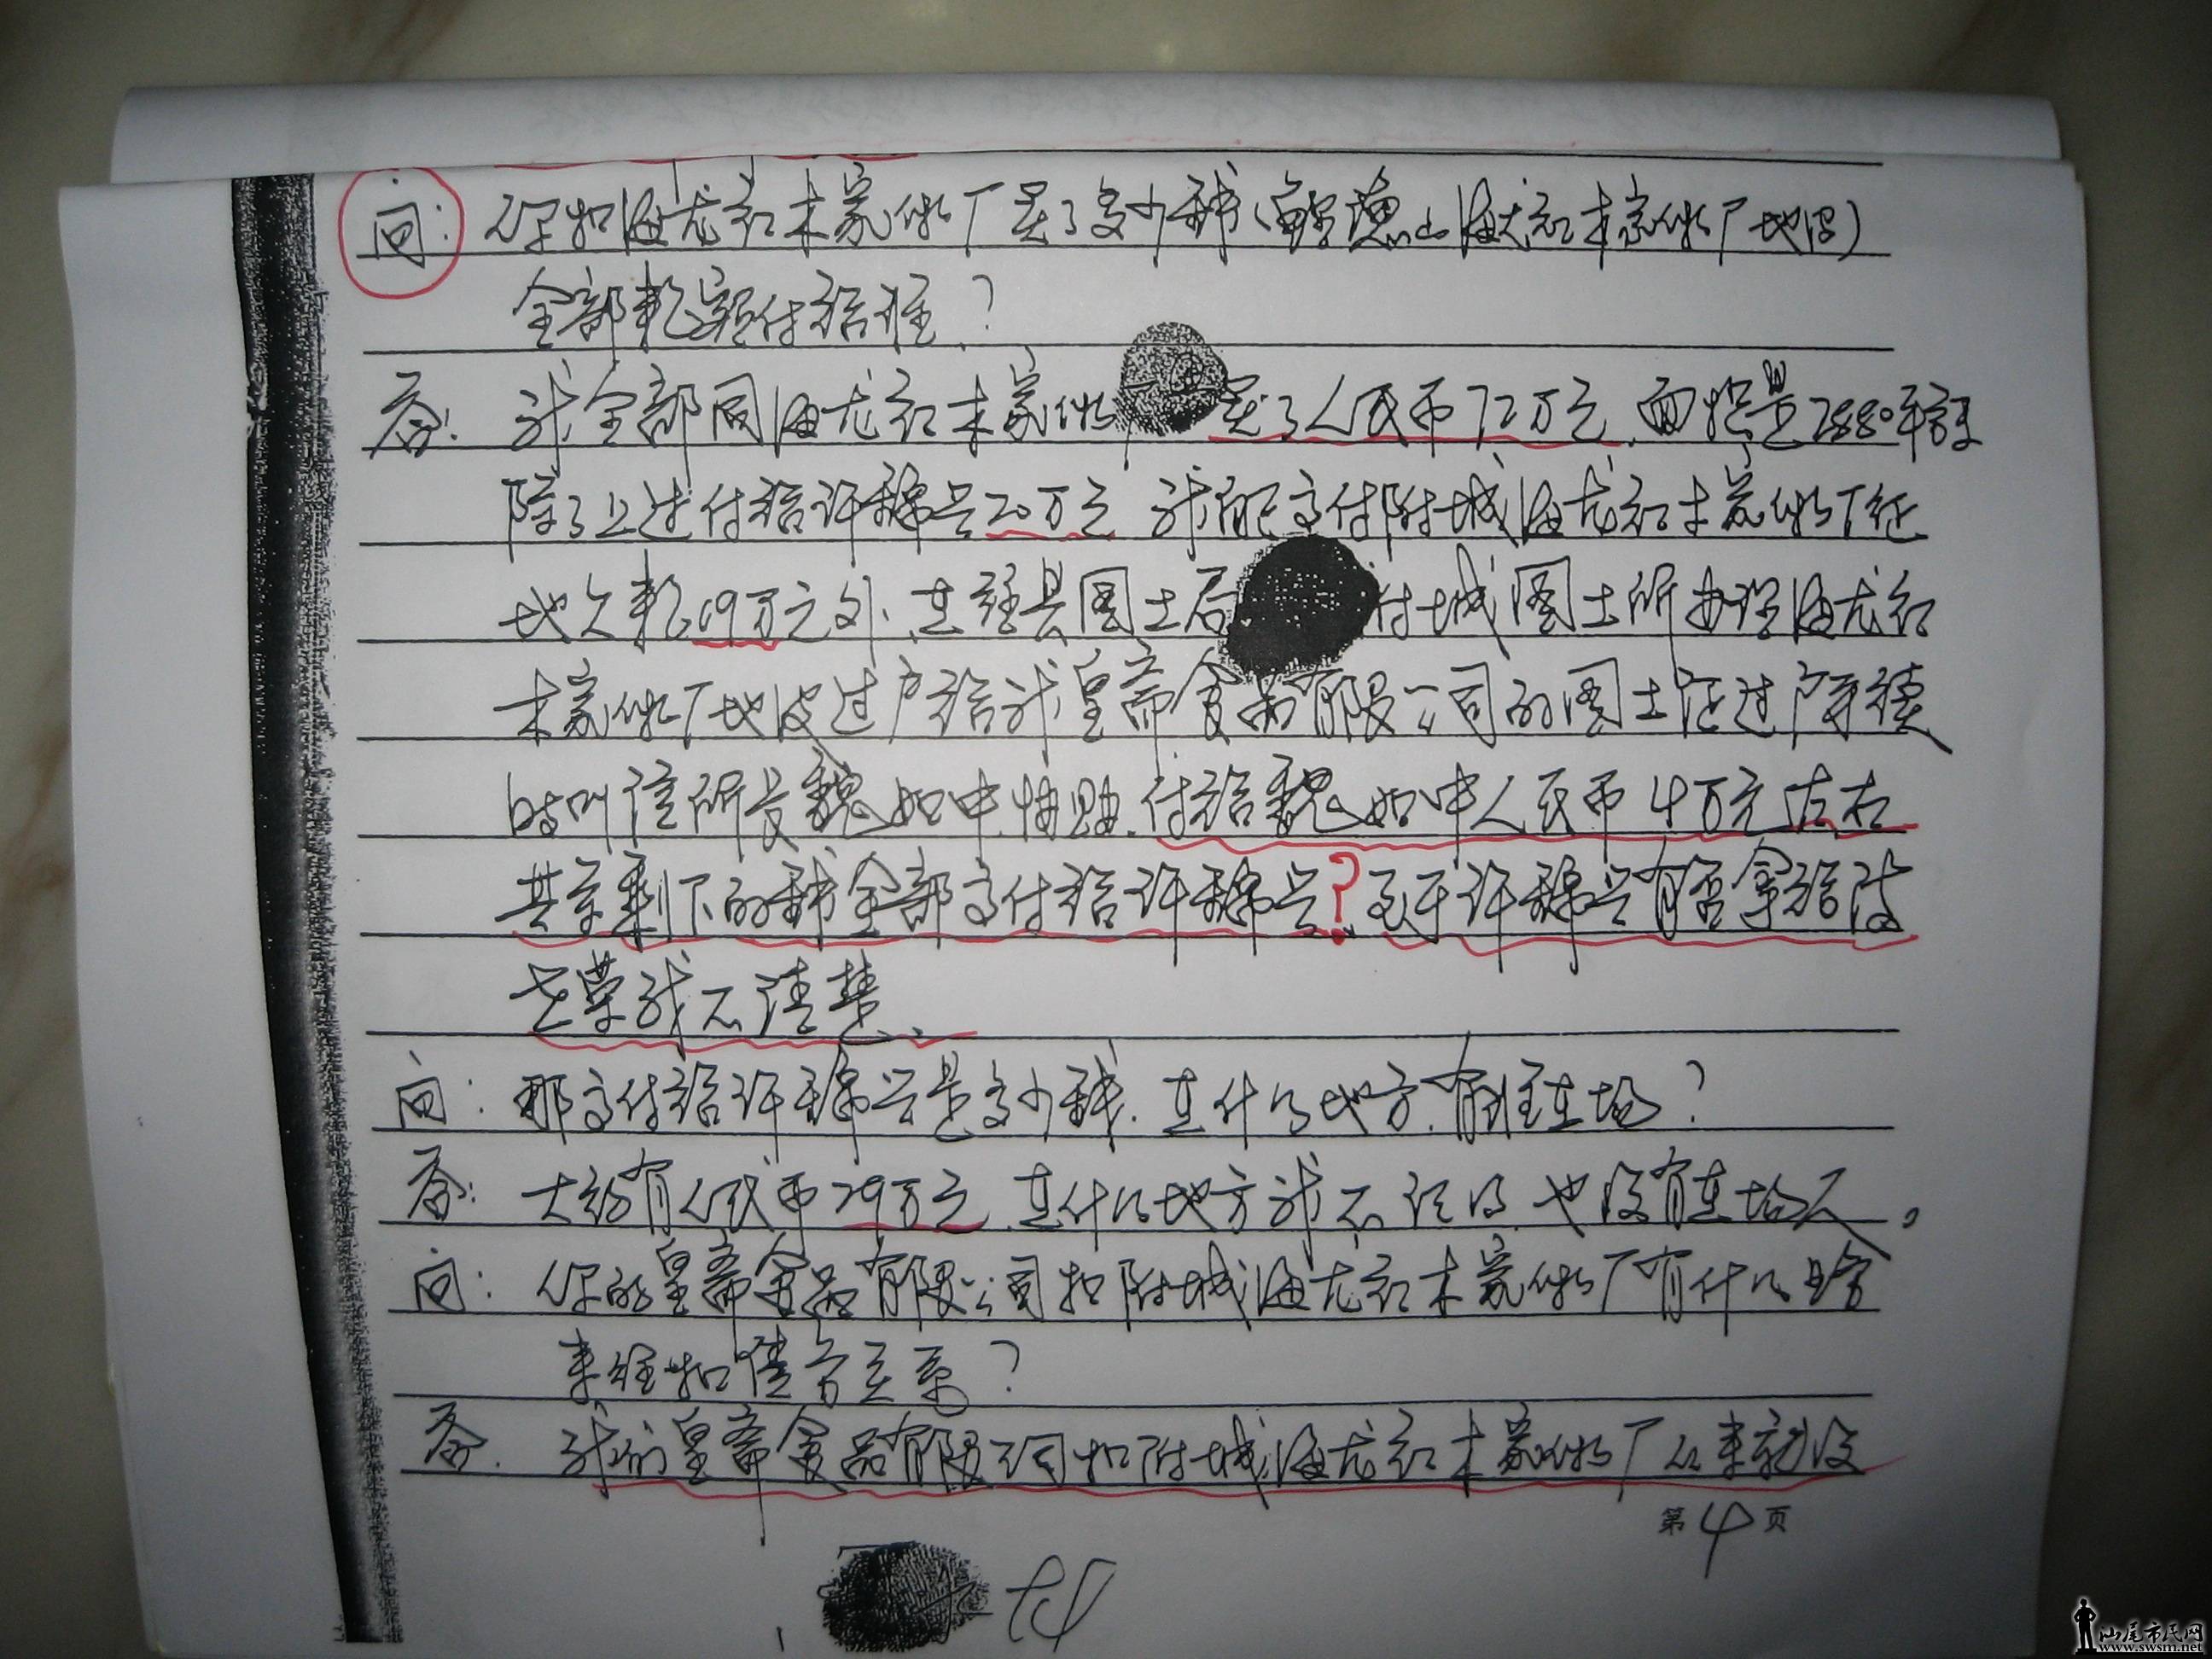 问：你和海龙红木家俬厂买了多少钱（鲘门山海龙红木家俬厂地皮）
全部款额付给谁？
答：我全部向海龙红木家俬厂买了人民币72万元，面积是2880平方
除了上述付给许穆兴20万元 我自己交付附城海龙红木家俬厂征
地欠款19万元外，在经县国土局 附城国土所办理海龙红
木家俬厂地皮过户给我皇斋食品有限公司的国土证过户手续
时叫信所长魏如中协助，付给魏如中人民币4万元左右
其余剩下的钱全部交付给许穆兴？至于许穆兴有否拿给
我不清楚。
问：那交付给许穆兴是多少钱，在什么地方，有谁在场？
答：大约有人民币29万元，在什么地方我不记得，也没有在场人。
问：你的皇斋食品有限公司和附城海龙红木家俬厂有什么
来往和债务关系？
答：我们皇斋食品有限公司和附城海龙红木家俬厂从来就没
第4页
汕尾市民网
www.swsm.net